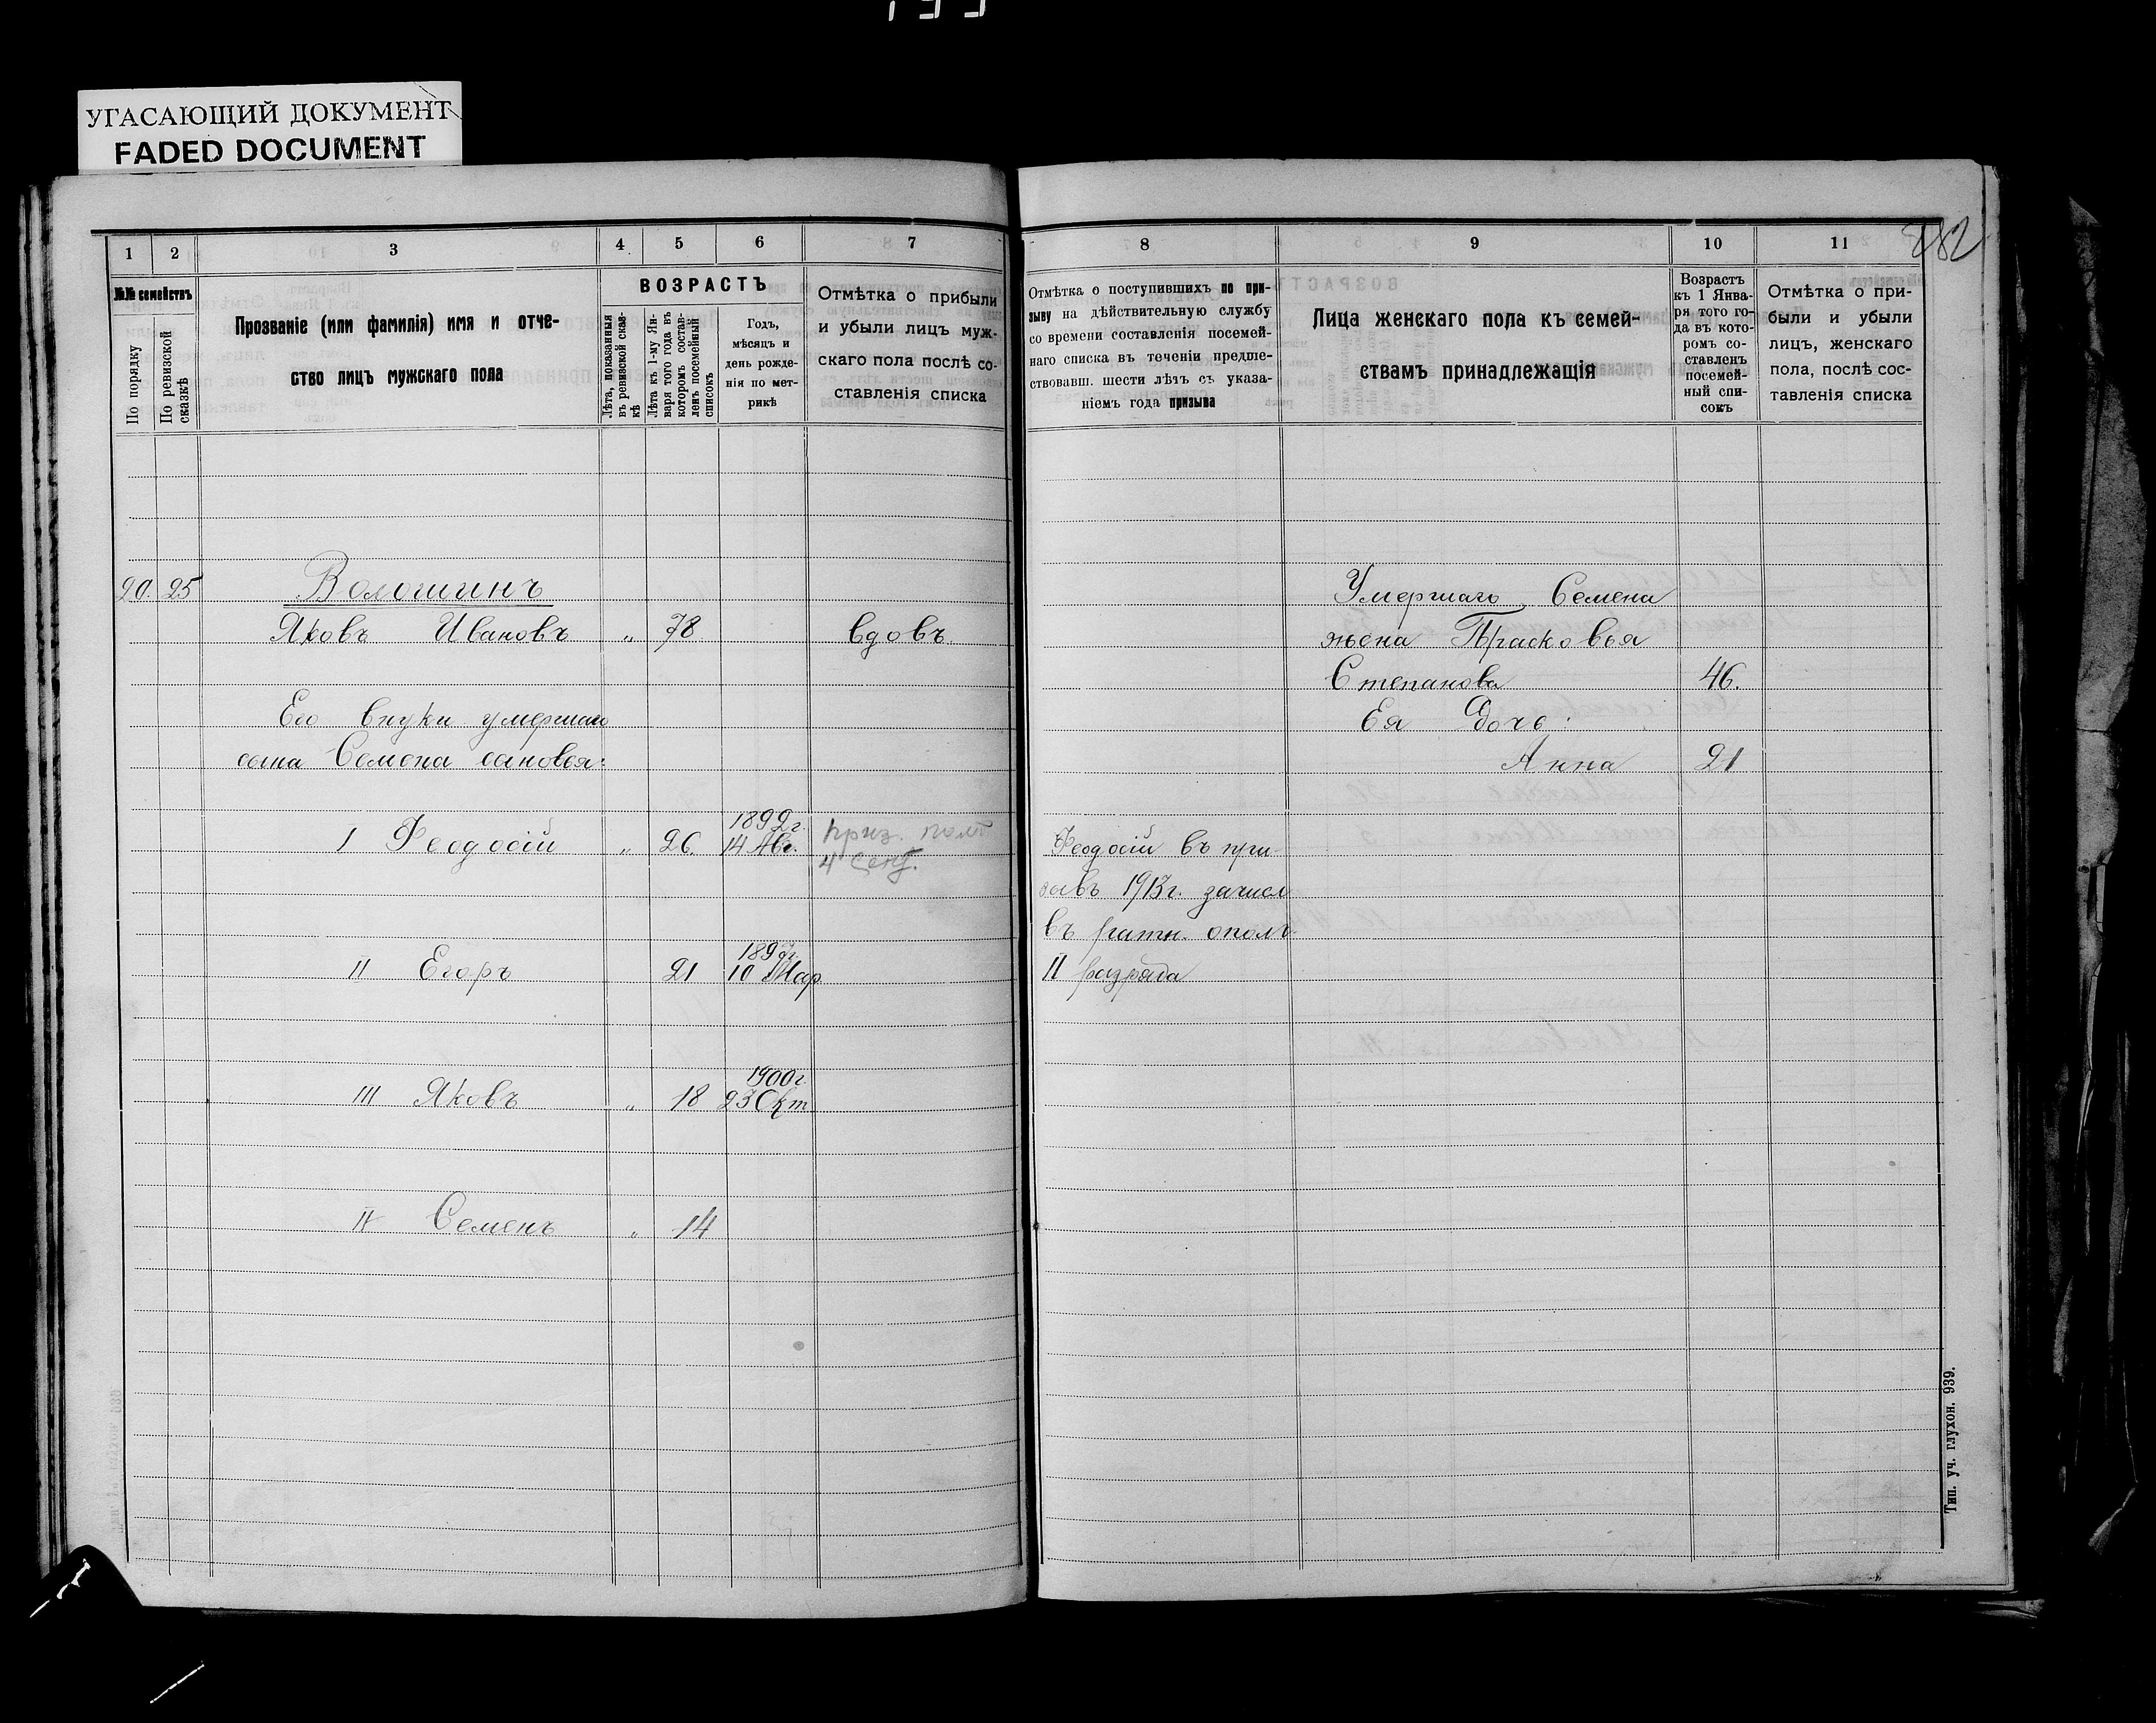 УГАСАЮЩИЙ ДОКУМЕНТ
FADED DOCUMENT
1 2 3 4 5 6 7
№№ семействъ
По порядку
По ревизской сказкѣ
Прозваніе (или фамилія) имя и отче-
ство лицъ мужскаго пола
ВОЗРАСТЪ
Лѣта, показанныя
въ ревизской сказ-
кѣ
Лѣта къ 1-му Ян-
варя того года въ
которомъ состав-
ленъ посемейный
списокъ
Годъ,
мѣсяцъ и
день рожде-
нія по мет-
рикѣ
Отмѣтка о прибыли
и убыли лицъ муж-
скаго пола послѣ со-
ставленія списка
20. 25 Волошинъ
Яковъ Ивановъ „ 78 вдовъ
Его внуки умершаго
сына Семена сыновья:
I Феодосій „ 26. 1892г. 14 Авг. приз.
4 Сент.
II Егоръ 21 1897г. 10 Мар
III Яковъ „ 18 1900г. 23 Окт
IV Семенъ „ 14
8 9 10 11
282
Отмѣтка о поступившихъ по при-
зыву на дѣйствительную службу
со времени составленія посемей-
наго списка въ теченіи предше-
ствовавш. шести лѣтъ съ указа-
ніемъ года призыва
Лица женскаго пола къ семей-
ствамъ принадлежащія
Возрастъ
къ 1 Янва-
ря того го-
да въ кото-
ромъ со-
ставленъ
посемей-
ный спи-
сокъ
Отмѣтка о при-
были и убыли
лицъ, женскаго
пола, послѣ сос-
тавленія списка
Умершаго Семена
жена Прасковья
Степанова 46.
Ея дочь:
Анна 21
Феодосій въ при-
зывъ 1913г. зачисл
въ ратн. ополч.
II разряда
Тип. уч. глухон. 939.